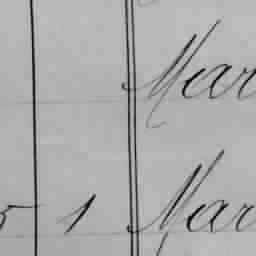 Mar
5 1 Mar